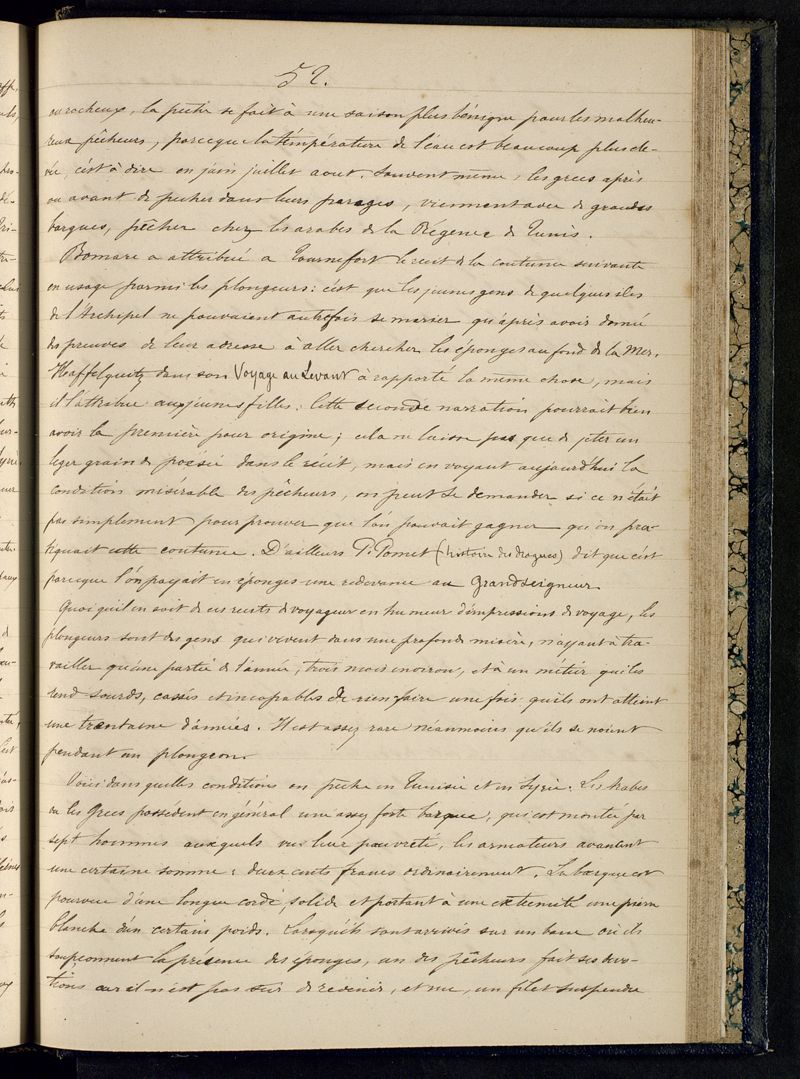 52.
ou rocheux, la pêche se fait à une saison plus bénigne pour les malheu-
reux pêcheurs, parceque la température de l'eau est beaucoup plus éle-
vée, c'est à dire en juin juillet aout. Souvent même, les grecs après
ou avant de pecher dans leurs parages, viennent avec de grandes
barques, pêcher chez les arabes de la Régence de Tunis.
Bomare a attribué a Tournefort le recit de la coutume suivante
en usage parmi les plongeurs: c'est que les jeunes gens de quelques iles
de l'Archipel ne pouvaient autrefois se marier qu'après avoir donné
des preuves de leur adresse à aller chercher les éponges au fond de la Mer.
Haffelquitz dans son Voyage au Levant à rapporté la même chose, mais
il l'attribue aux jeunes filles: Cette seconde narration pourrait bien
avoir la première pour origine; cela ne laisse pas que de jeter un
leger grain de poésie dans le récit, mais en voyant aujourd'hui la
condition misérable des pêcheurs, on peut se demander si ce n'était
pas simplement pour prouver que l'on pouvait gagner qu'on pra-
tiquait cette coutume. D'ailleurs P. Pomet (histoire des drogues) dit que c'est
parceque l'on payait en éponges une redevance au Grand seigneur
Quoiqu'il en soit de ces recits de voyageur en humeur d'impressions de voyage, les
plongeurs sont des gens qui vivent dans une profonde misère, n'ayant à tra-
vailler qu'une partie de l'année, trois mois environ, et à un métier qui les
rend sourds, cassés et incapables de rien faire une fois qu'ils ont atteint
une trentaine d'années. Il est assez rare néanmoins qu'ils se noient
pendant un plongeon.
Voici dans quelles conditions on pêche en Tunisie et en Syrie. Les Arabes
ou les Grecs possèdent en général une assez forte barque, qui est montée par
sept hommes auxquels vu leur pauvreté, les armateurs avancent
une certaine somme: deux cents francs ordinairement. La barque est
pourvue d'une longue corde, solide et portant à une extremité une pierre
blanche d'un certain poids. Lorsqu'ils sont arrivés sur un banc où ils
soupçonnent la présence des éponges, un des pêcheurs fait ses dévo-
tions car il n'est pas sur de revenir, et nu, un filet suspendu